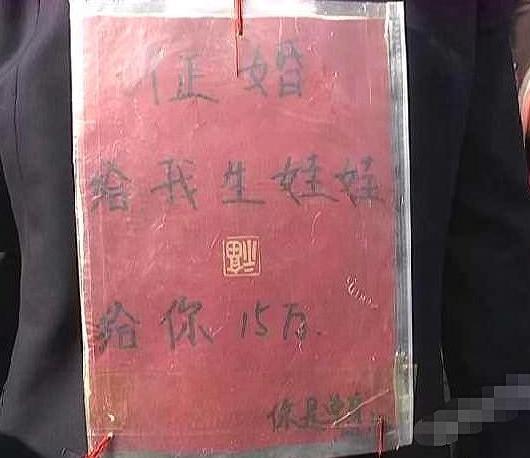 征婚
给我生娃娃
福
给你15万.
你是